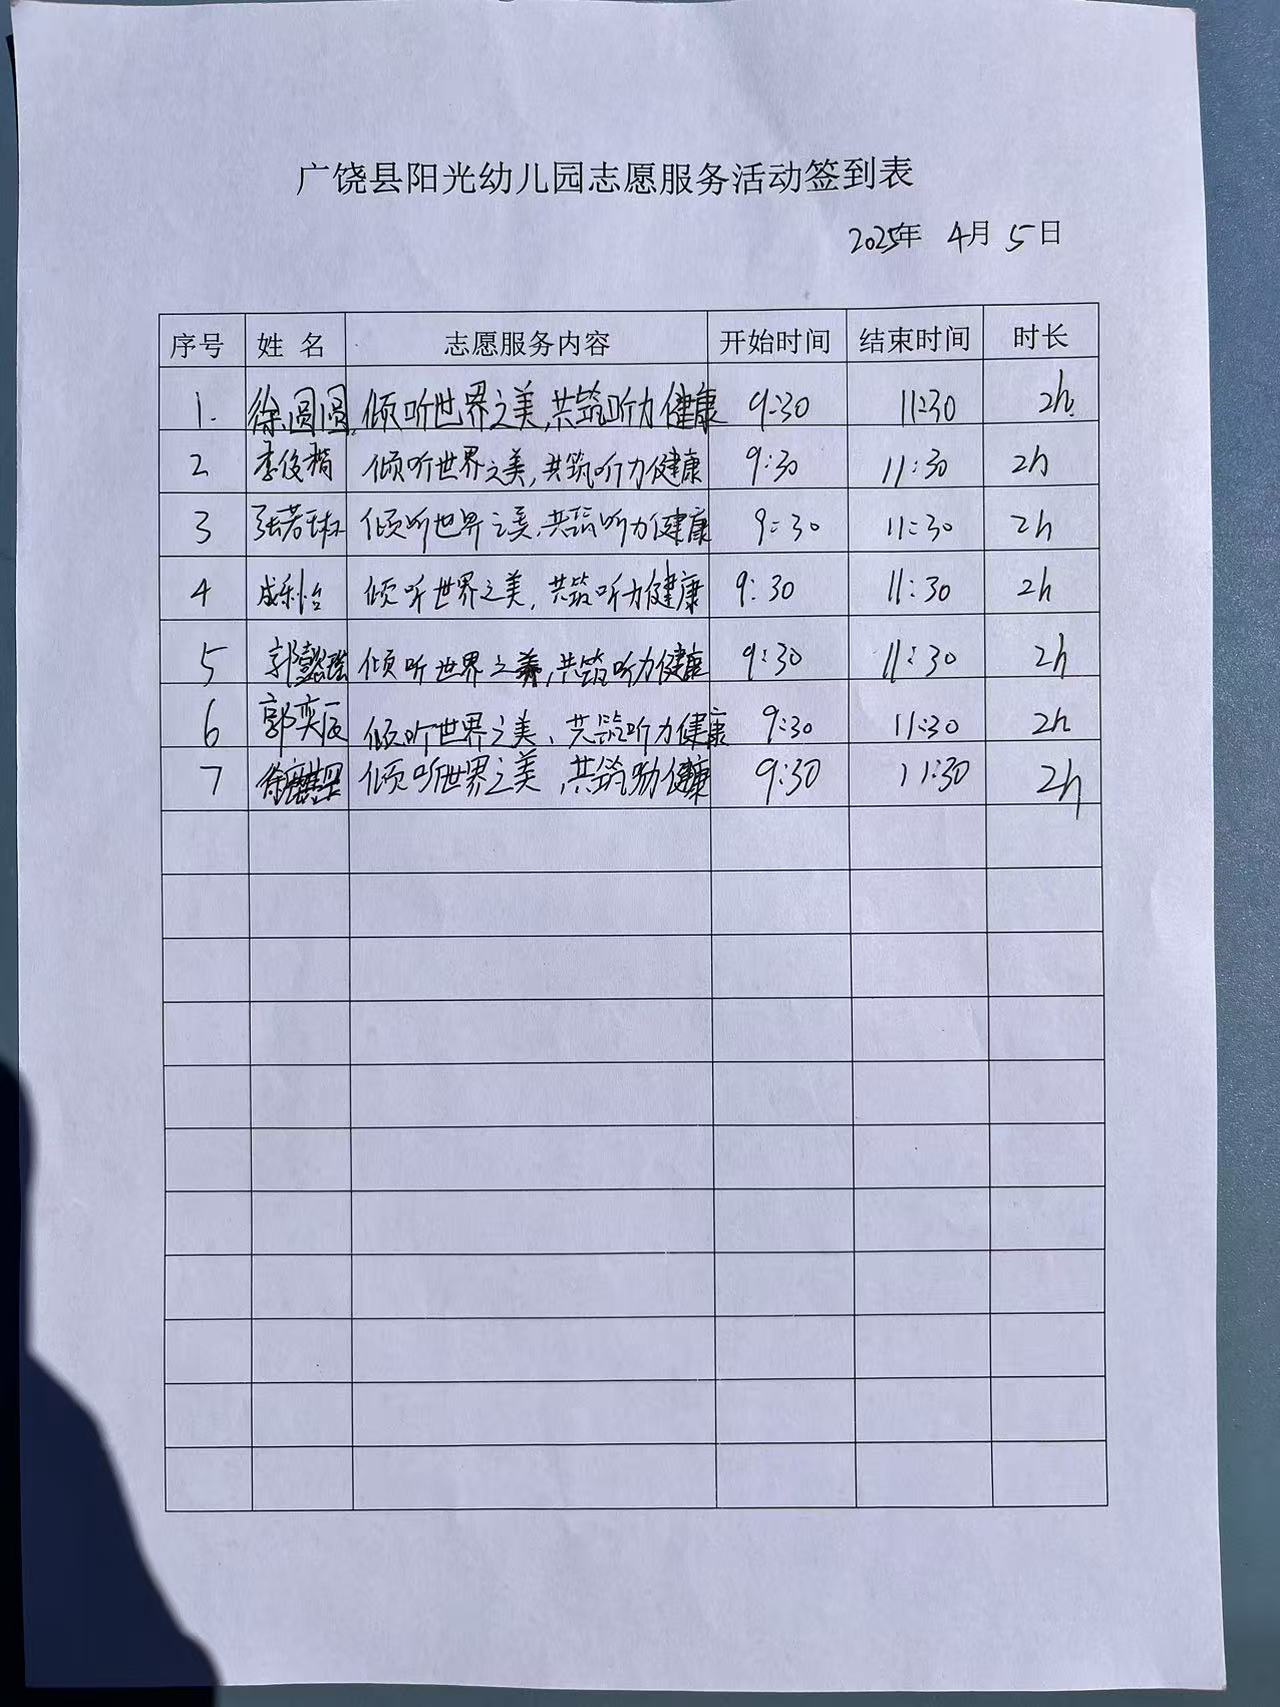 广饶县阳光幼儿园志愿服务活动签到表
2025年 4月 5日
序号 姓 名 志愿服务内容 开始时间 结束时间 时长
1. 徐圆圆 倾听世界之美,共筑听力健康 9:30 11:30 2h
2 李俊楷 倾听世界之美,共筑听力健康 9:30 11:30 2h
3 张若琳 倾听世界之美,共筑听力健康 9:30 11:30 2h
4 成利怡 倾听世界之美,共筑听力健康 9:30 11:30 2h
5 郭懿瑶 倾听世界之美,共筑听力健康 9:30 11:30 2h
6 郭奕辰 倾听世界之美、共筑听力健康 9:30 11:30 2h
7 徐 倾听世界之美,共筑 健康 9:30 11:30 2h